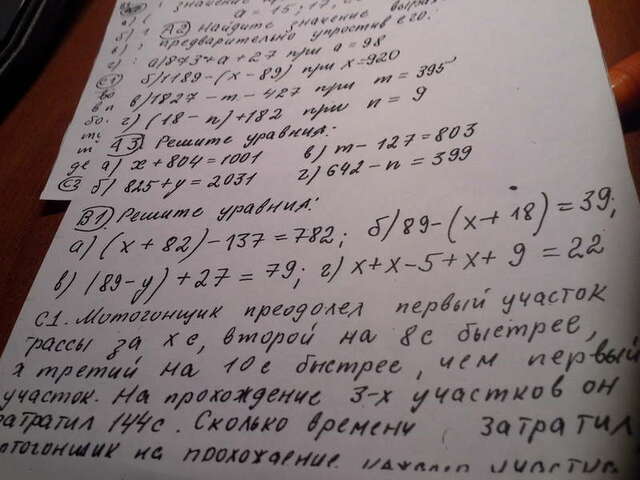 значение
а = 15; 17,
А2 Найдите значение
предварительно упростив его.
а) 873 + а + 27 при а = 98
б) 1189 - (х - 89) при х = 920
в) 1827 - m - 427 при m = 395
г) (18 - n) + 182 при n = 9
А3. Решите уравнения:
а) х + 804 = 1001 в) m - 127 = 803
б) 825 + у = 2031 г) 642 - n = 399
В1. Решите уравния:
а) (х + 82) - 137 = 782; б) 89 - (х + 18) = 39;
в) (89 - у) + 27 = 79; г) х + х - 5 + х + 9 = 22
С1. Мотогонщик преодолел первый участок
трассы за х с, второй на 8 с быстрее,
а третий на 10 с быстрее, чем первый
участок. На прохождение 3-х участков он
затратил 144 с. Сколько времени затратил
мотогонщик на прохождение